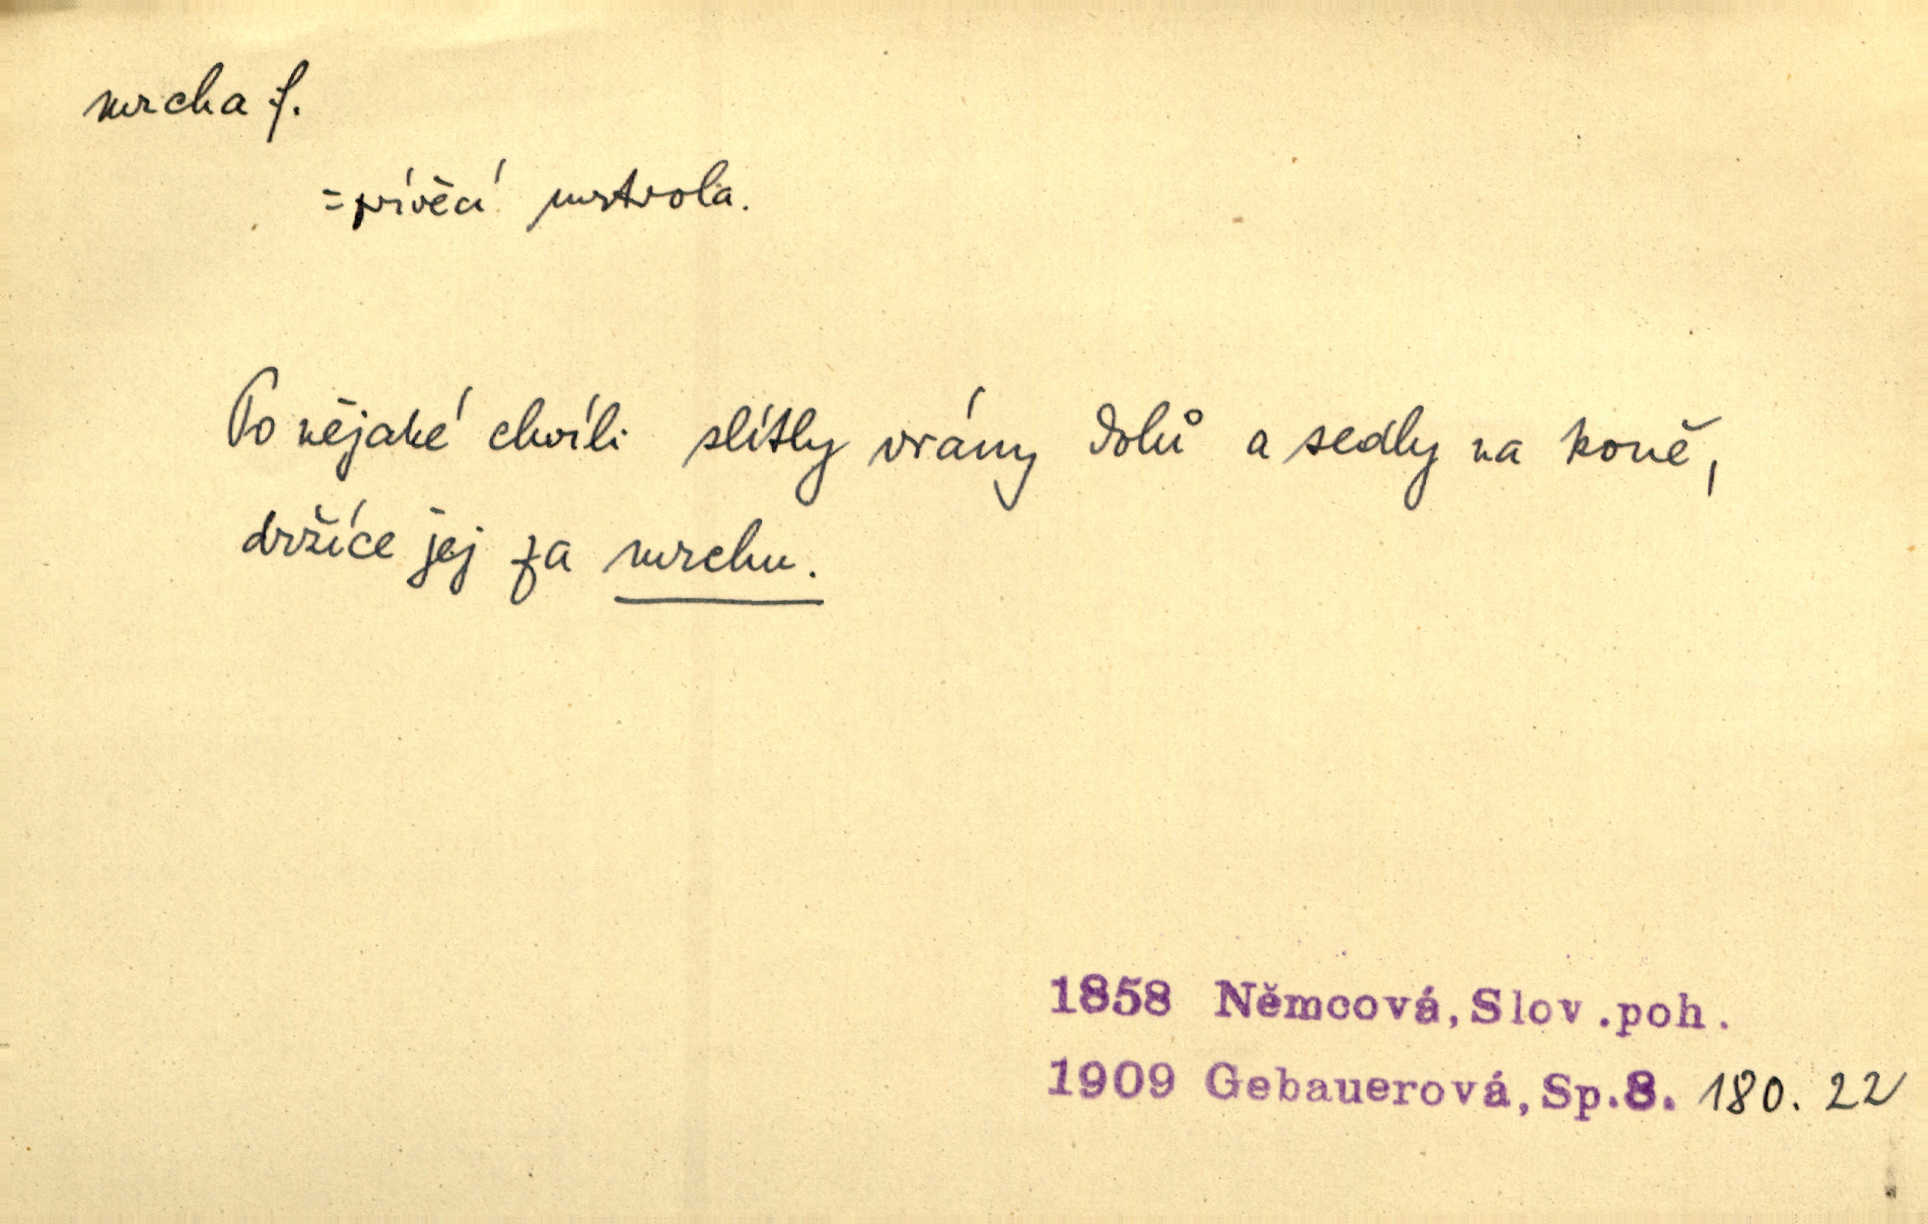 mrcha f.
= zvířecí mrtvola.
Po nějaké chvíli slítly vrány dolů a sedly na koně,
držíce jej za mrchu.
1858 Němcová, Slov.poh.
1909 Gebauerová, Sp.8. 180. 22